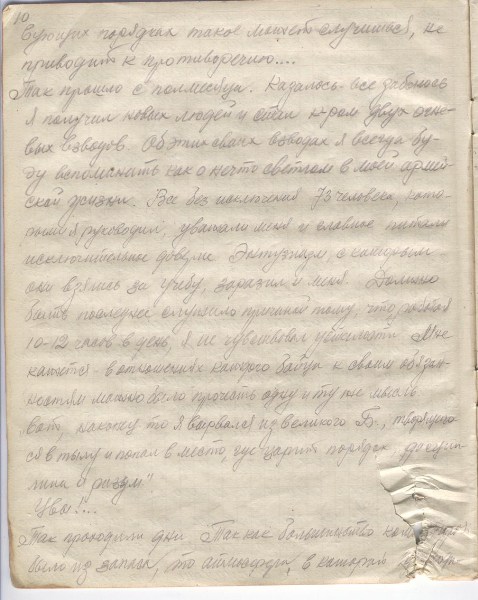 10
вующих порядках такое может случиться, не
приводит к противоречию....
Так прошло с полмесяца. Казалось все забылось
Я получил новых людей и стал к-ром двух огне-
вых взводов. Об этих своих взводах я всегда бу-
ду вспоминать как о нечто светлом в моей армей-
ской жизни. Все без исключения 73 человека, кото-
рыми я руководил, уважали меня и главное питали
исключительное доверие Энтузиазм, с которым
они взялись за учебу, заразил и меня. Должно
быть последнее служило причиной тому, что работая
10-12 часов в день, я не чувствовал усталости. Мне
кажется - в отношениях каждого бойца к своим обязан-
ностям можно было прочитать одну и ту же мысль
вот, наконец то я вырвался из великого Б., творящего
ся в тылу и попал в место, где царит порядок, дисцип
лина и разум"
Увы!...
Так проходили дни Так как большинство
было из запаса, то атмосфера, в которой